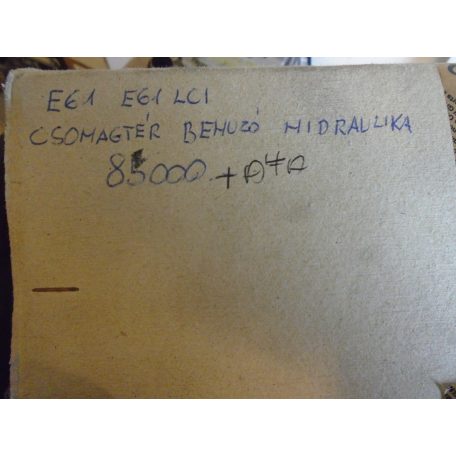 E61 E61 LCI
CSOMAGTÉR BEHUZÓ HIDRAULIKA
85000 + ÁFA